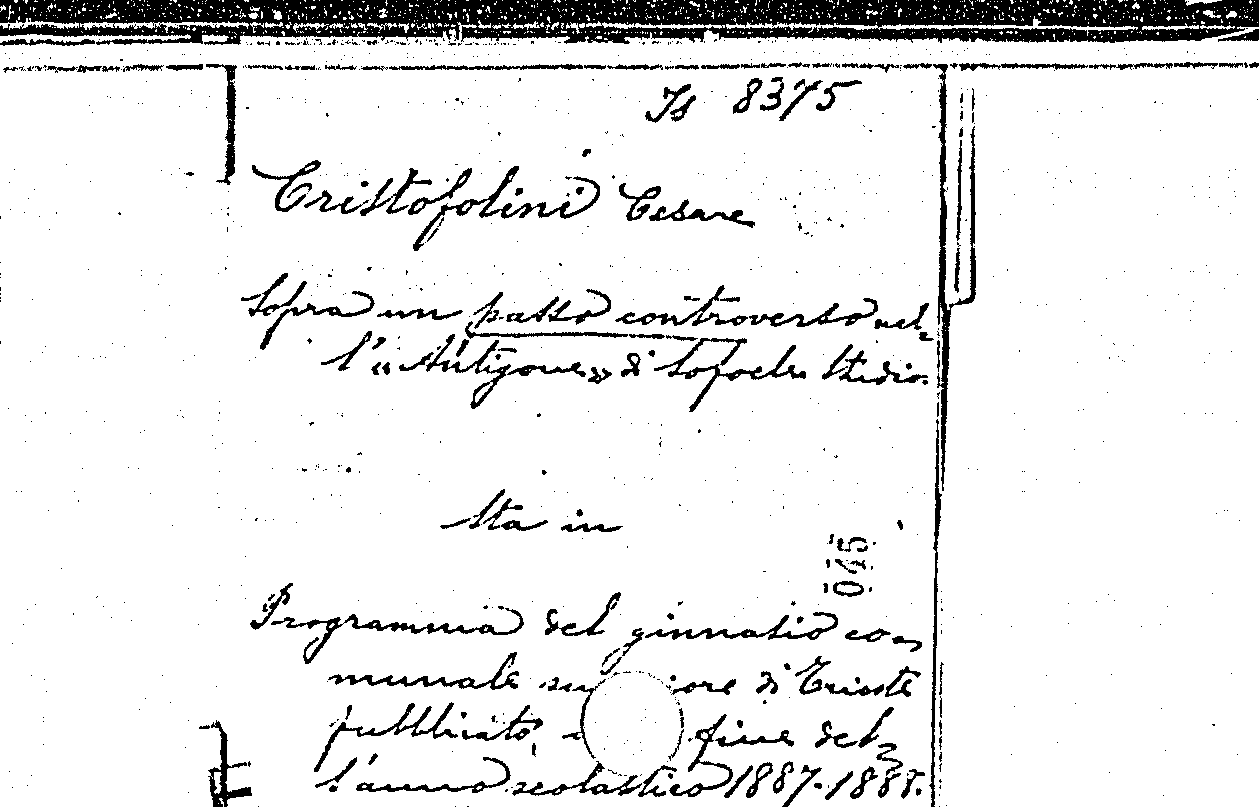 Is 8375
Cristofolini Cesare
Sopra un passo controverso nel-
l'«Antigone» di Sofocle. Studio.
Sta in
045
Programma del ginnasio co-
munale su iore di Trieste
pubblicato, fine del-
l'anno scolastico 1887-1888.